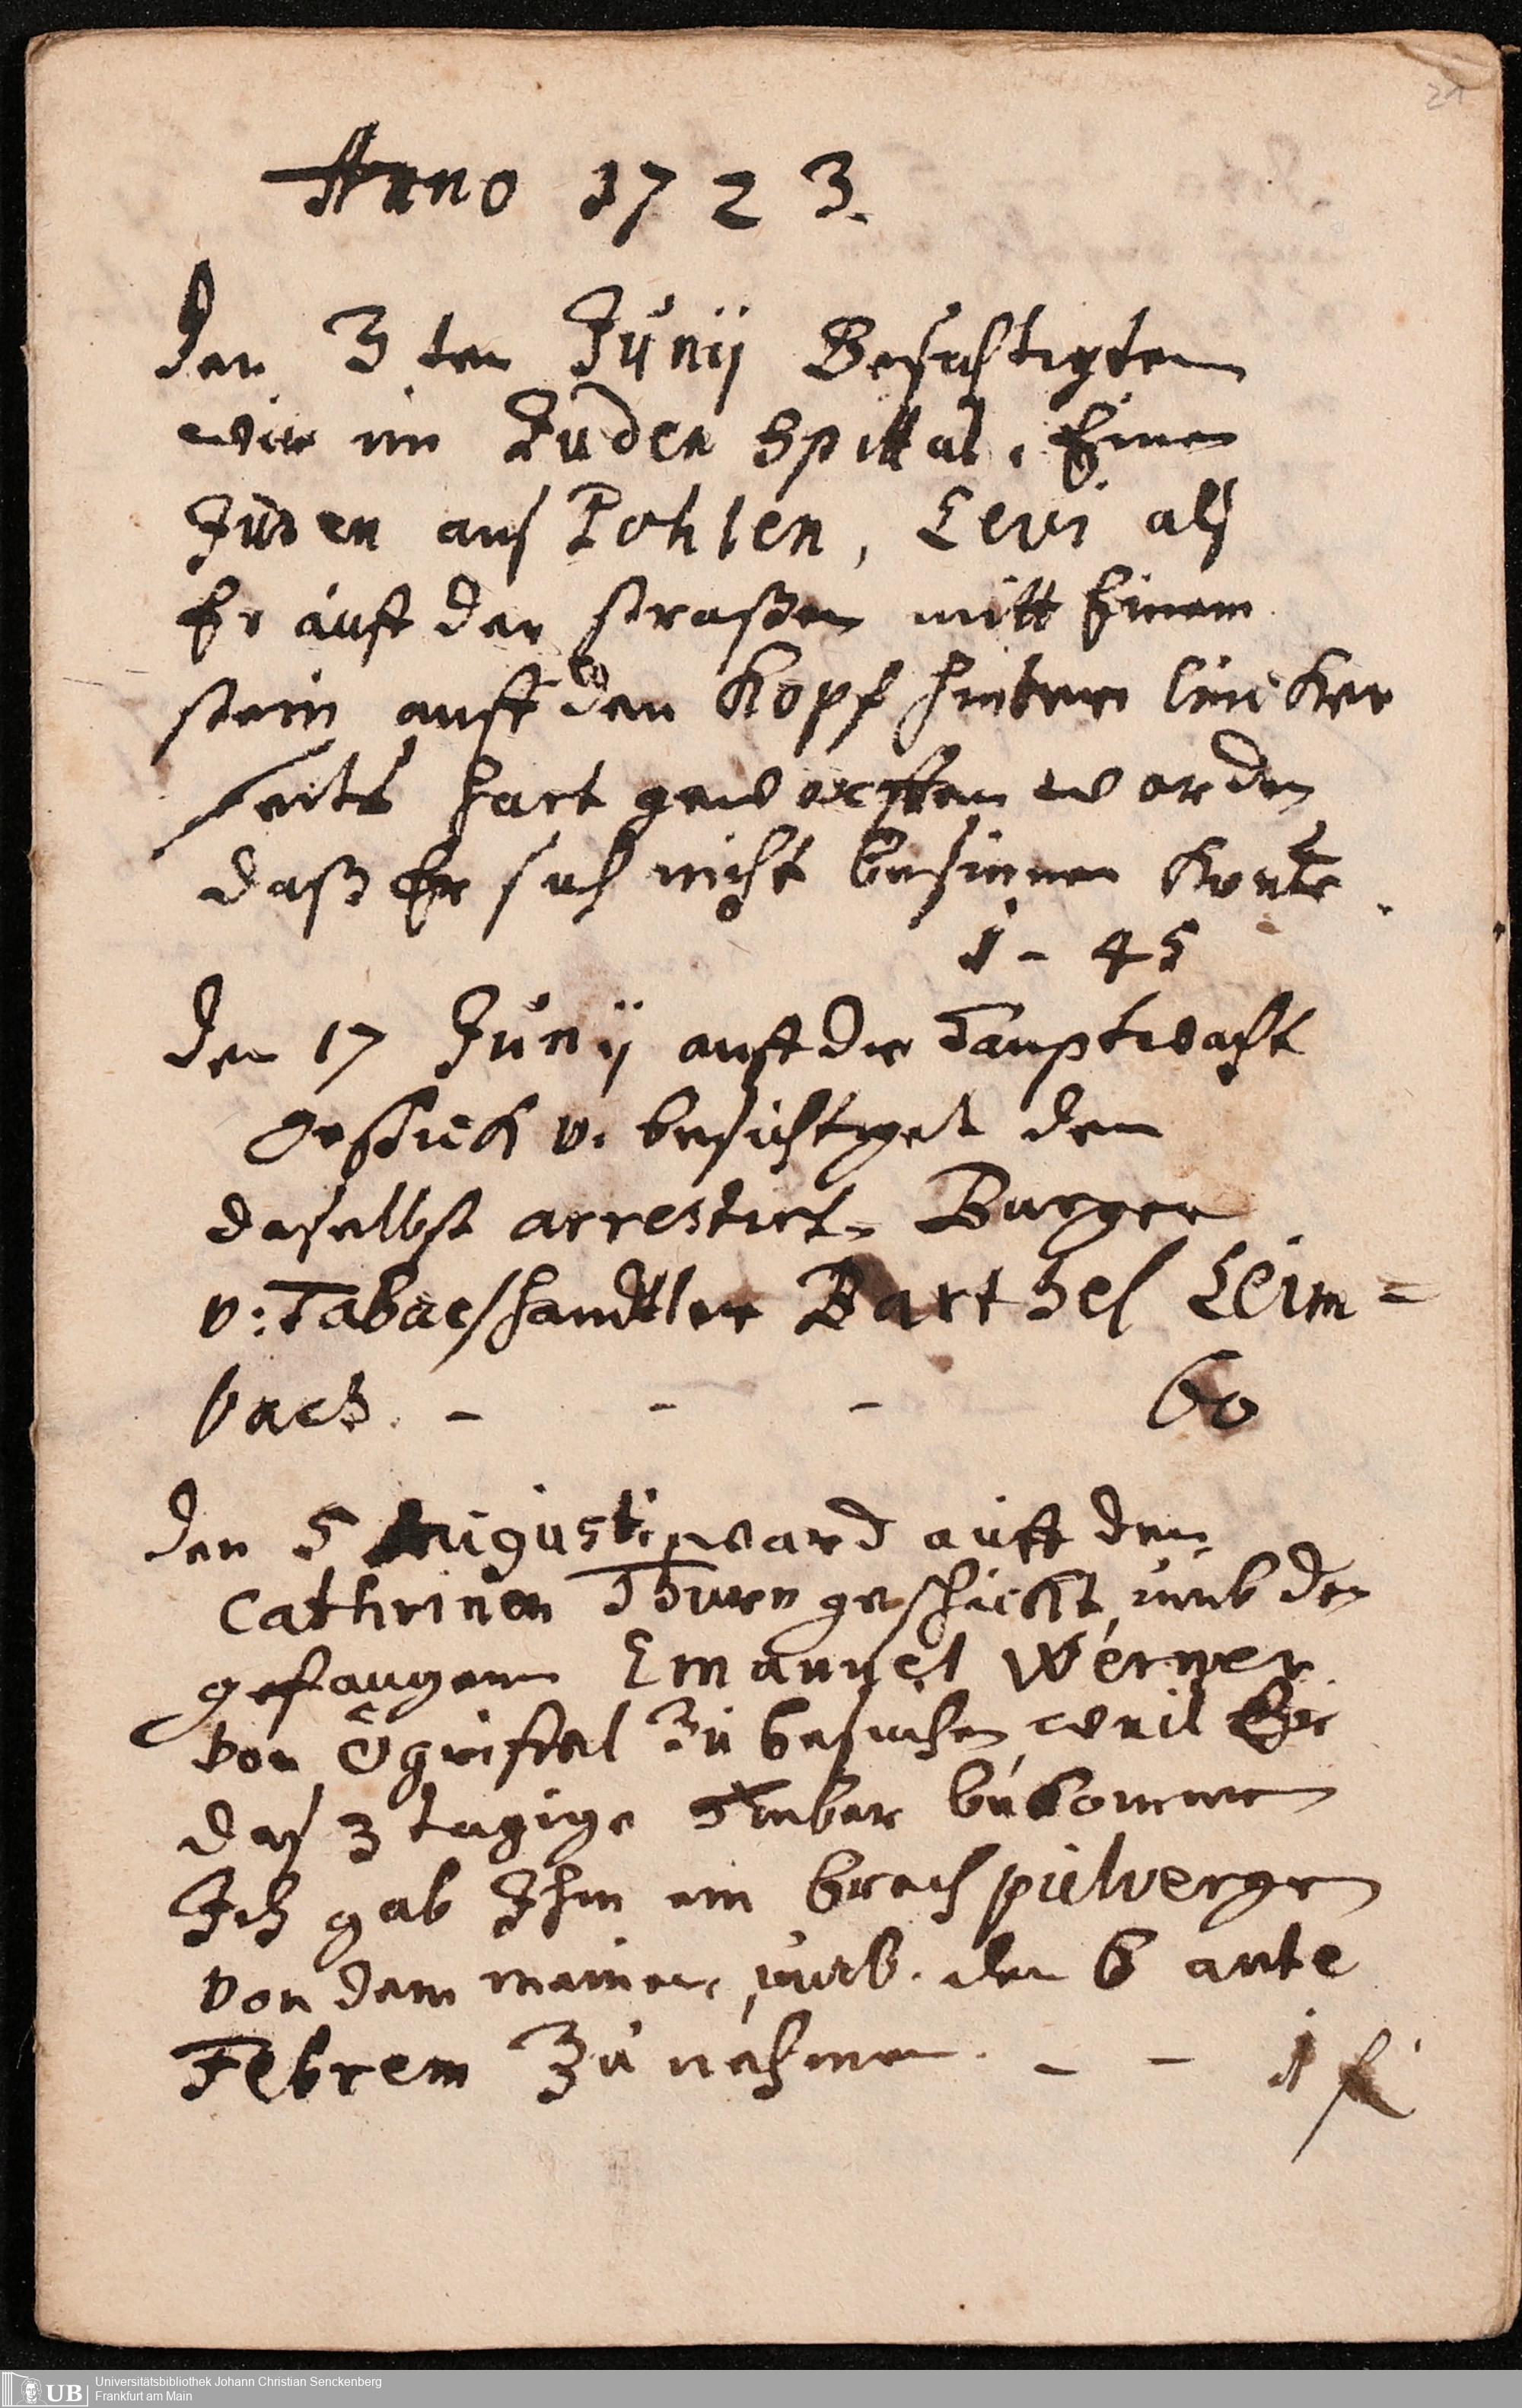 21
Anno 1723.
Den 3 ten Junij Besichtigten
wir im Juden Spittal, Einen
Juden auß Pohlen, Levi alß
Er auff der straßen mitt Einem
stein auff den Kopf hinten lincker
seits hart geworffen worden
daß Er sich nicht besinnen konte.
1 - 45
Den 17 Junij auff die Hauptwacht
geschickt v. besichtiget den
daselbst arrestirt. Burger
v: Tabacshandtler Barthel Leim=
bach. - - - 60
Den 5 Augusti ward auff den
Cathrinen Thurn geschickt, umb den
gefangenen Emanuel Werner
von zu besuchen, weil Er
daß 3 tagige Fieber bekommen
Ich gab Ihm ein brech pulvergen
von dem meinen, umb. den 6 ante
Febrem Zu nehmen. - - 1 f
UB
Universitätsbibliothek Johann Christian Senckenberg
Frankfurt am Main